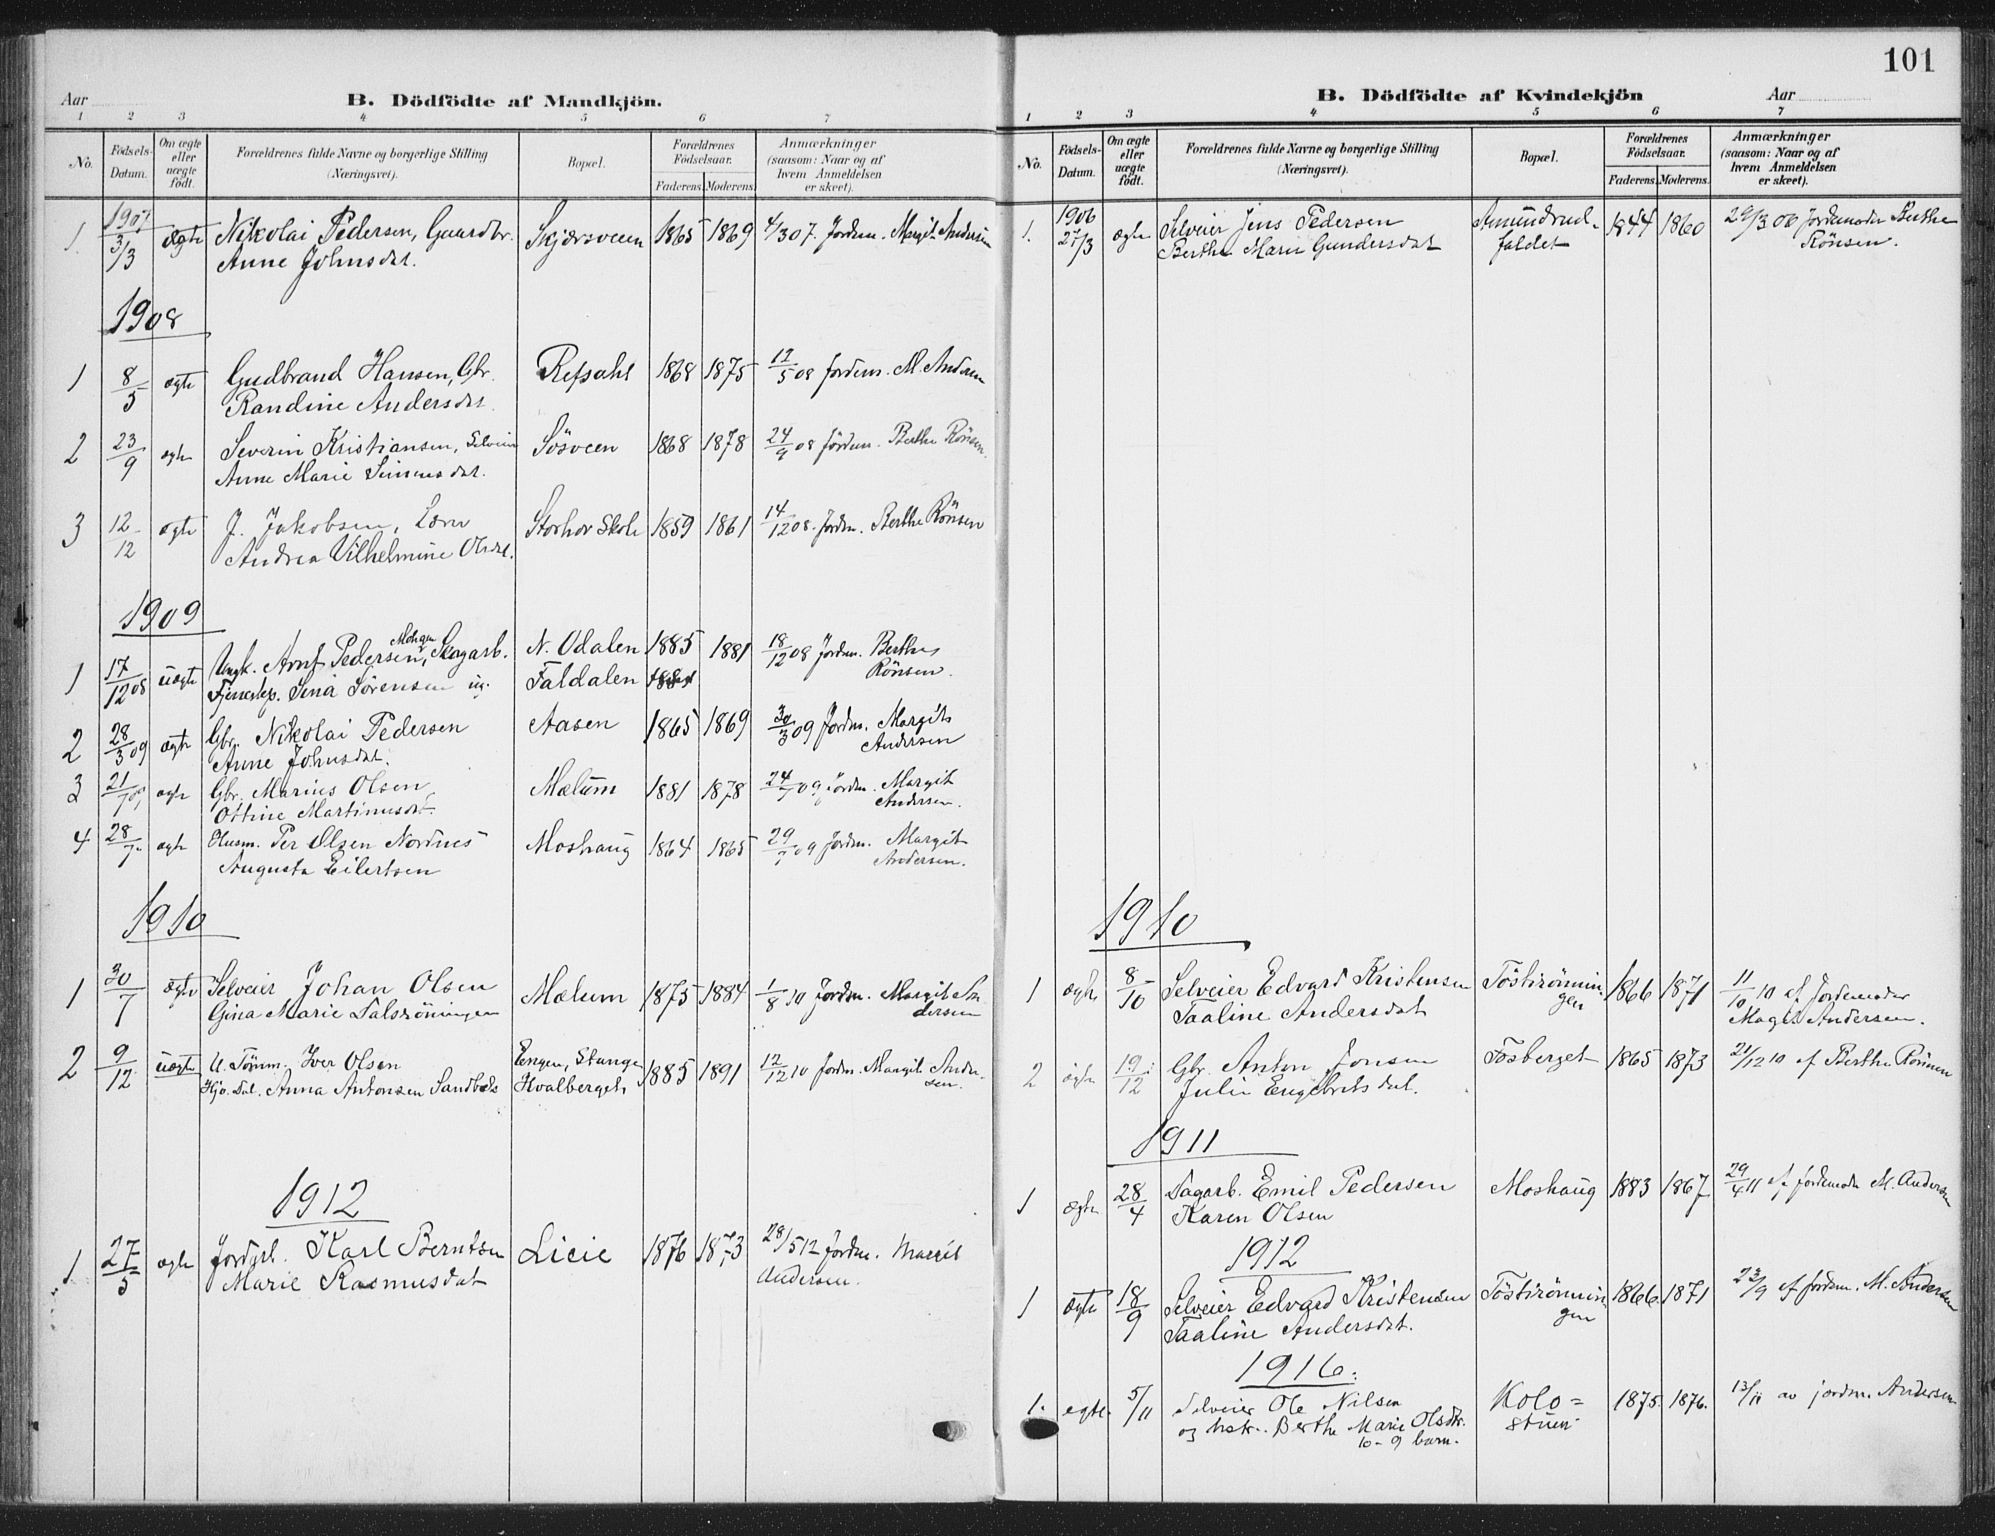 Aar
B. Dödfödte af Mandkjön.
1 2 3 4 5 6 7
No.
Födsels-Datum.
Om ægte eller uægte født.
Forældrenes fulde Navne og borgerlige Stilling (Næringsvei).
Bopæl.
Forældrenes Födselsaar.
Faderens. Moderens.
Anmærkninger (saasom: Naar og af hvem Anmeldelsen er skeet).
1907
1 3/3 ægte Nikolai Pedersen, Gaardbr. Skjærsveen 1865 1869 4/3 07. Jordm. Margit Andersen
Anne Johnsdat.
1908
1 8/5 ægte Gudbrand Hansen, Gbr. Refsahl 1868 1875 12/5 08 jordm. M. Andersen
Randine Andersdat.
2 23/9 ægte Severin Kristiansen, Selveier Sösveen 1868 1878 24/9 08 Jordm. Berthe Rönsen.
Anne Marie Simensdat.
3 12/12 ægte J. Jakobsen, Lærer Storhov Skole 1859 1861 14/12 08. Jordm. Berthe Rönsen
Andrea Vilhelmine Olsdat.
1909
1 17/12 08 uægte Ungk. Arnf Pedersen, Skogarb. N. Odalen 1885 1881 18/12 08 Jordm. Berthe
Tjenestep. Sina Sörensen ug. Faldalen Rönsen.
2 28/3 09 ægte Gbr. Nikolai Pedersen Aasen 1865 1869 30/3 09 Jordm. Margit
Anne Johnsdat. Andersen
3 21/7 09 ægte Gbr. Marius Olsen Mælum 1881 1878 24/7 09 Jordm. Margit
Ottine Martinusdat. Andersen.
4 28/7 ægte Husm. Per Olsen Nordnes Moshaug 1864 1865 29/7 09 Jordm. Margit
Augusta Eilertsen Andersen.
1910
1 30/7 ægte Selveier Johan Olsen Mælum 1875 1884 1/8 10 Jordm. Margit An-
Gina Marie Dalsröningen dersen
2 9/12 uægte U. Tömm. Iver Olsen Engen, Stange 1885 1891 12/12 10 Jordm. Margit Ander-
Anna Antonsen Sandbæk Hvalberget, sen.
1912
1 27/5 ægte Karl Berntsen Licie 1876 1873 28/5 12 Jordm. Margit
Marie Rasmusdat Andersen.
101
B. Dödfödte af Kvindekjön
Aar
1 2 3 4 5 6 7
No.
Födsels-Datum.
Om ægte eller uægte födt.
Forældrenes fulde Navne og borgerlige Stilling (Næringsvei).
Bopæl.
Forældrenes Födselsaar.
Faderens. Moderens.
Anmærkninger (saasom: Naar og af hvem Anmeldelsen er skeet).
1906
1. 27/3 ægte Selveier Jens Pedersen Amundrud- 1844 1860 29/3 06 Jordemoder Berthe
Berthe Marie Gundersdat faldet Rönsen.
1910
1 ægte 8/10 Selveier Edvard Kristensen Töstirönnin- 1866 1871 11/10 10 af Jordemoder
Taaline Andersdat gen Magit Andersen.
2 ægte 19/12 Gbr. Anton Jonsen Fosberget 1865 1873 21/12 10 af Berthe Rönsen
Julie Engebritsdat.
1911
1 ægte 28/4 Dagarb. Emil Pedersen Moshaug 1883 1867 29/4 11 af jordemoder M. Andersen
Karen Olsen
1912
1 ægte 18/9 Selveier Edvard Kristensen Töstirönnin- 1866 1871 23/9 af jordm. M. Andersen
Taaline Andersdat. gen
1916.
1. egte. 5/11 Selveier Ole Nilsen Kolo= 1875. 1876. 13/11 av jordm. Andersen
og hstr. Berthe Marie Olsdtr. stuen
10 - 9 barn.